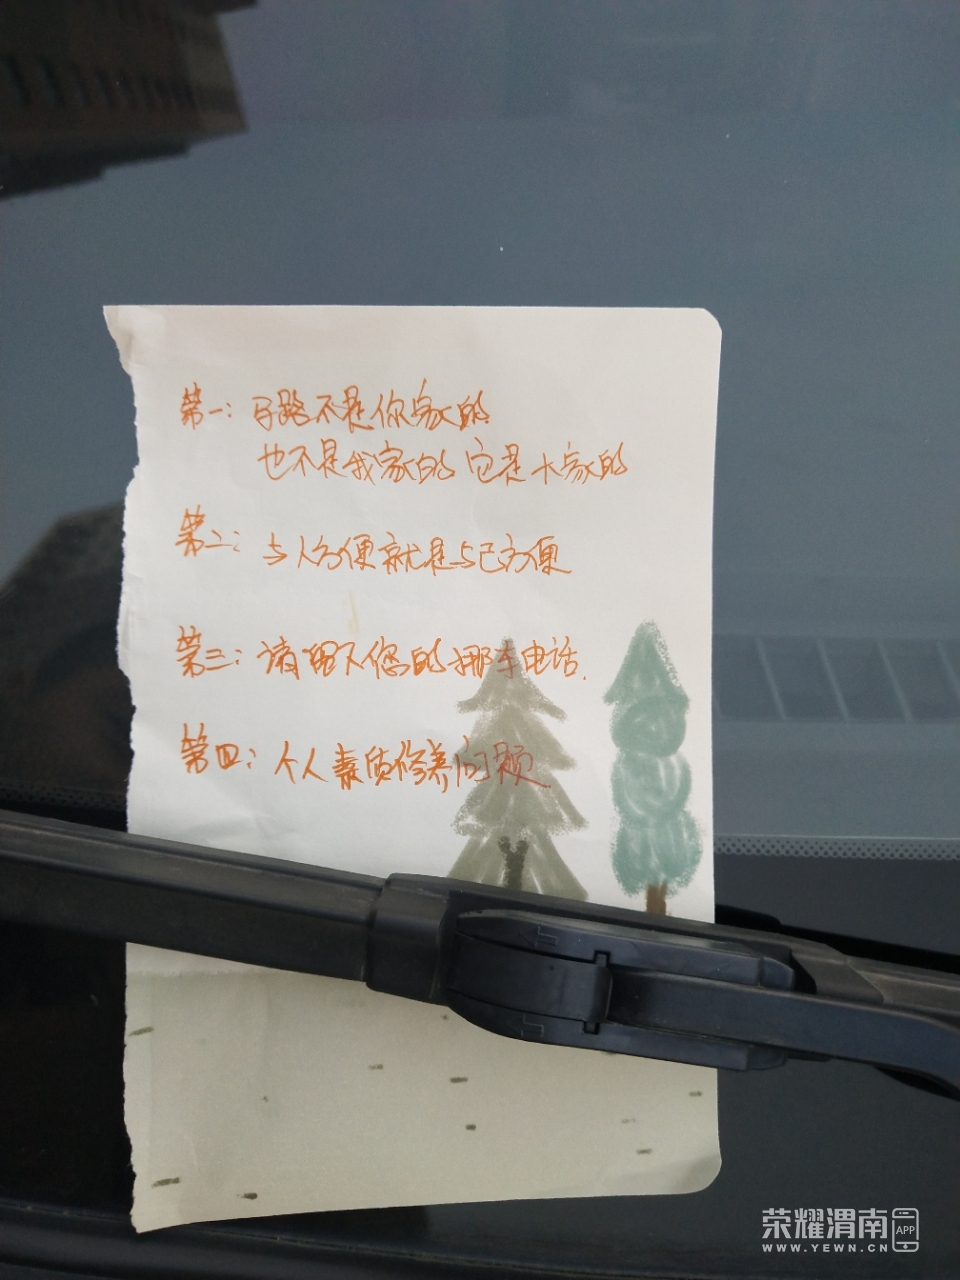 第一：马路不是你家的
也不是我家的 它是大家的
第二：与人方便就是与己方便
第三：请留下您的挪车电话.
第四：个人素质修养问题
荣耀渭南
APP
WWW.YEWN.CN